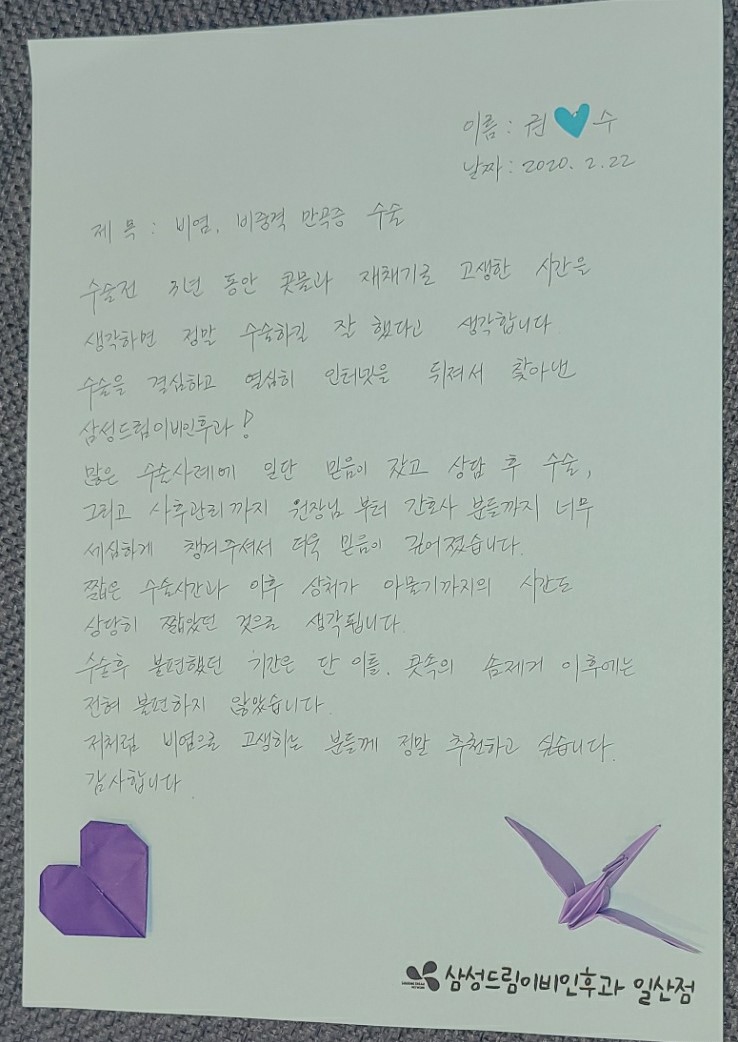 이름 : 권 수
날짜 : 2020. 2. 22
제 목 : 비염, 비중격 만곡증 수술
수술전 3년 동안 콧물과 재채기로 고생한 시간을
생각하면 정말 수술하길 잘 했다고 생각합니다
수술을 결심하고 열심히 인터넷을 뒤져서 찾아낸
삼성드림이비인후과!
많은 수술사례에 일단 믿음이 갔고 상담 후 수술,
그리고 사후관리까지 원장님 부터 간호사 분들까지 너무
세심하게 챙겨주셔서 더욱 믿음이 깊어졌습니다.
짧은 수술시간과 이후 상처가 아물기까지의 시간도
상당히 짧았던 것으로 생각됩니다.
수술후 불편했던 기간은 단 이틀. 콧속의 솜제거 이후에는
전혀 불편하지 않았습니다.
저처럼 비염으로 고생하는 분들께 정말 추천하고 싶습니다.
감사합니다
삼성드림이비인후과 일산점